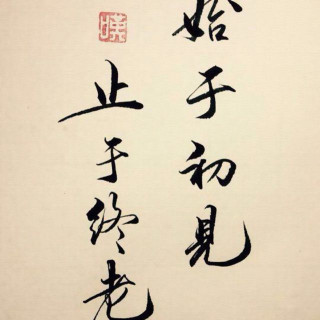 始于初見
止于終老